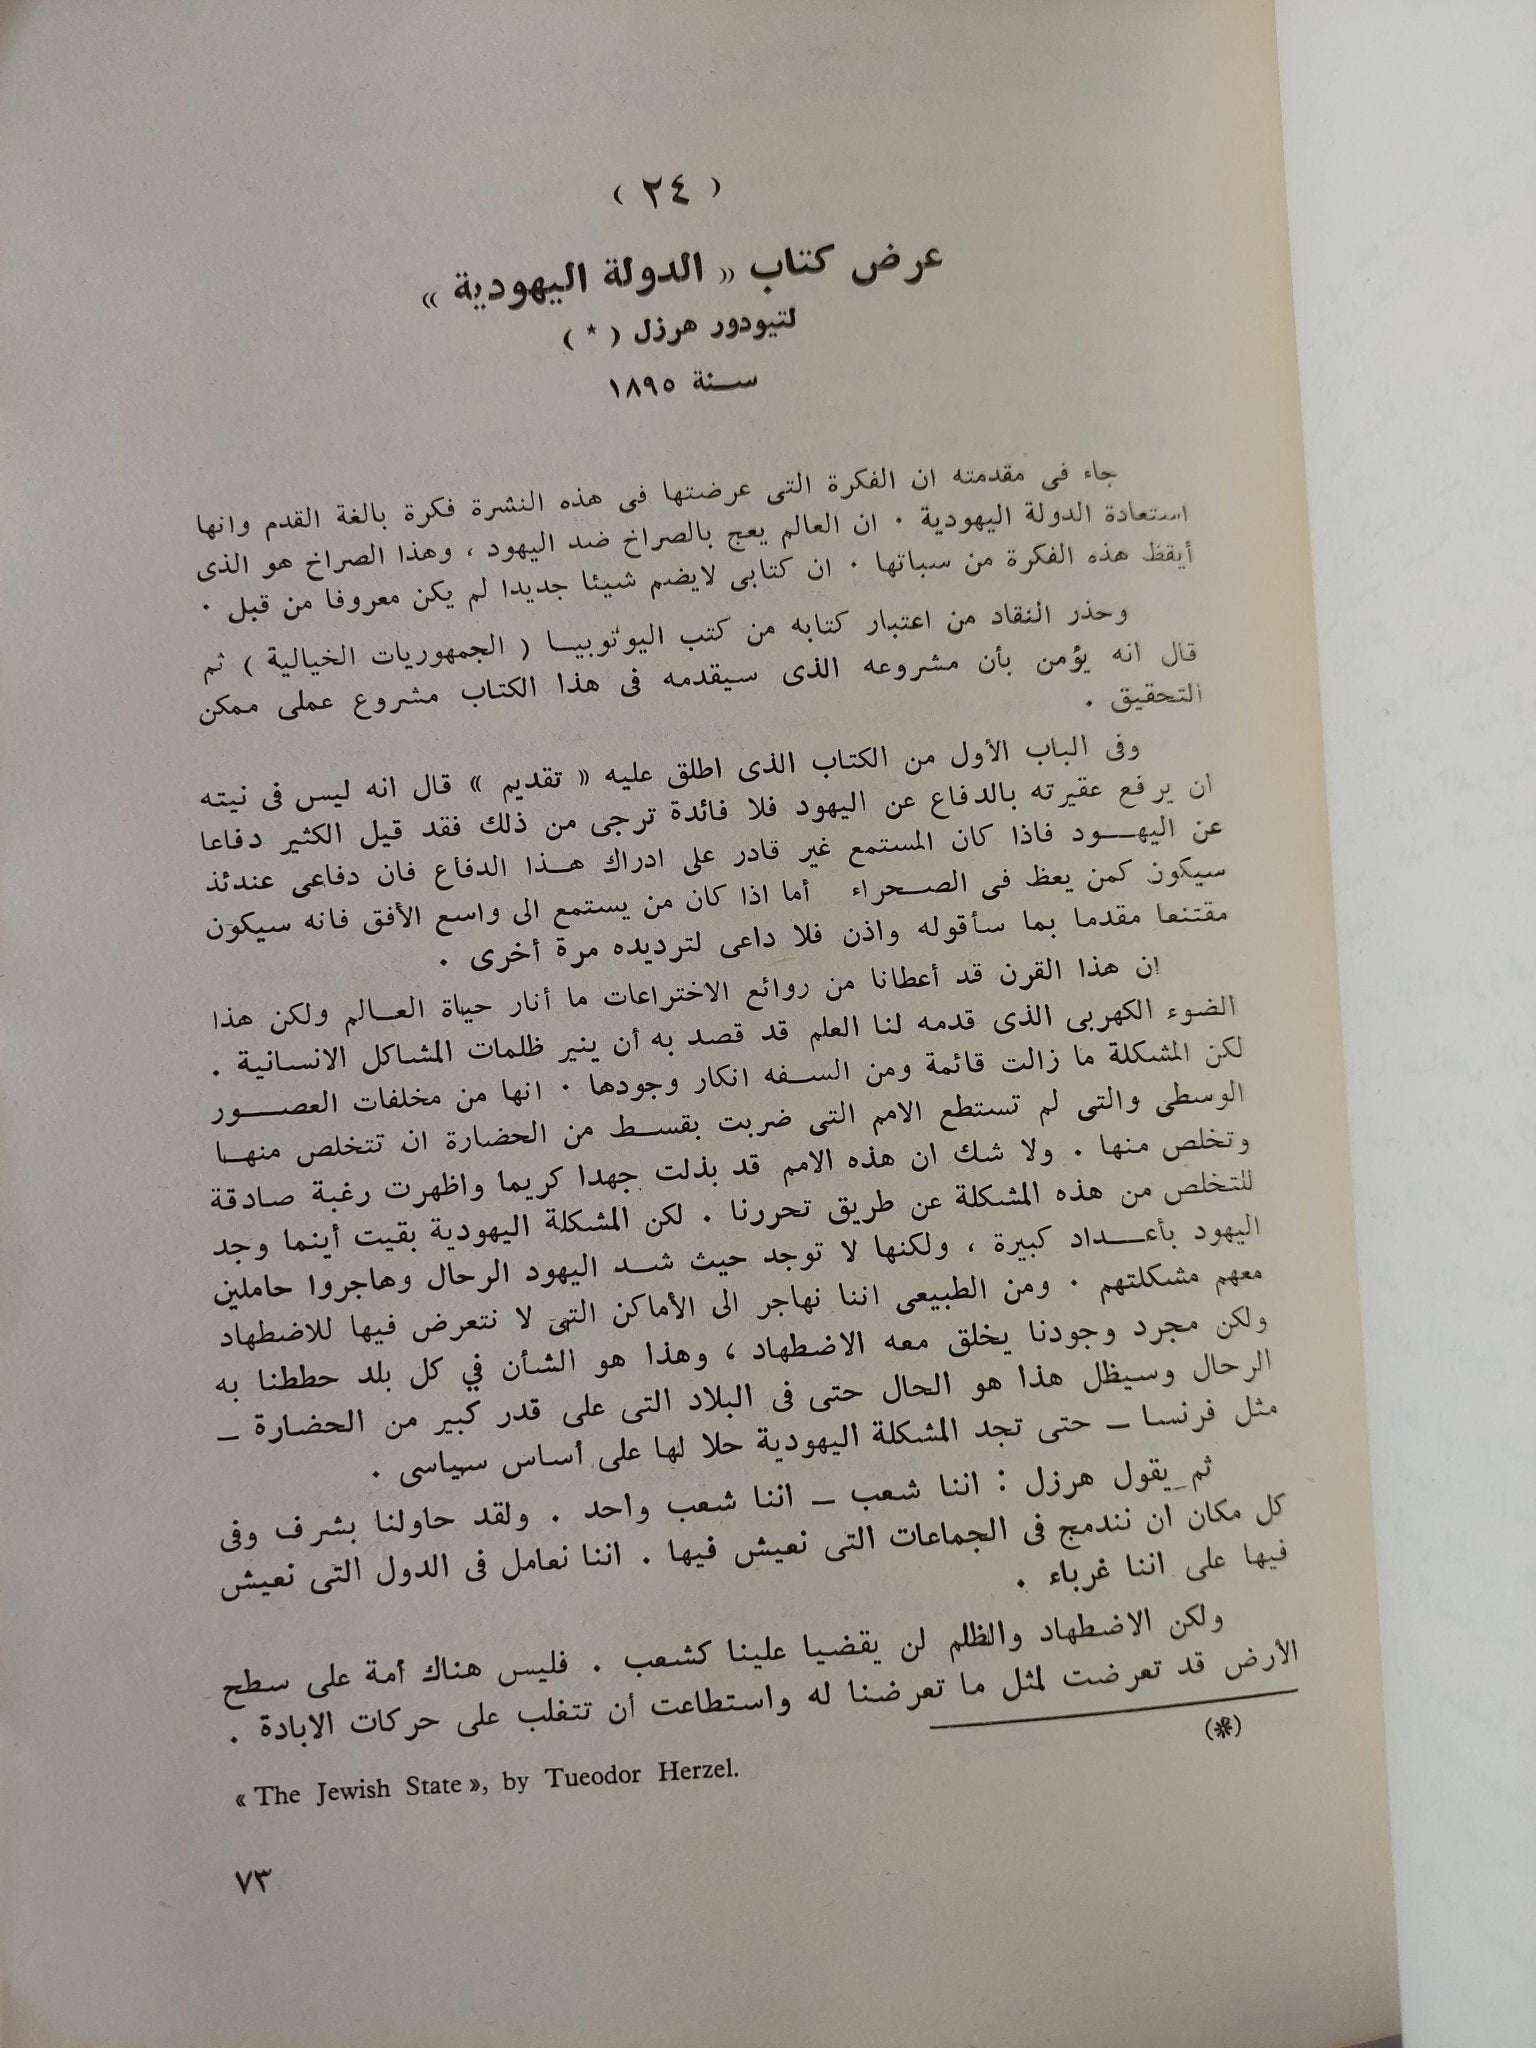 ( ٢٤ )
عرض كتاب « الدولة اليهودية »
لتيودور هرزل ( * )
ســنة ١٨٩٥
جاء فى مقدمته ان الفكرة التى عرضتها فى هذه النشرة فكرة بالغة القدم وانها
استعادة الدولة اليهودية . ان العالم يعج بالصراخ ضد اليهود ، وهذا الصراخ هو الذى
أيقظ هذه الفكرة من سباتها . ان كتابى لايضم شيئا جديدا لم يكن معروفا من قبل .
وحذر النقاد من اعتبار كتابه من كتب اليوتوبيــا ( الجمهوريات الخيالية ) ثم
قال انه يؤمن بأن مشروعه الذى سيقدمه فى هذا الكتاب مشروع عملى ممكن
التحقيق .
وفى الباب الأول من الكتاب الذى اطلق عليه « تقديم » قال انه ليس فى نيته
ان يرفع عقيرته بالدفاع عن اليهود فلا فائدة ترجى من ذلك فقد قيل الكثير دفاعا
عن اليهــود فاذا كان المستمع غير قادر على ادراك هــذا الدفاع فان دفاعى عندئذ
سيكون كمن يعظ فى الصــحراء أما اذا كان من يستمع الى واسع الأفق فانه سيكون
مقتنعا مقدما بما سأقوله واذن فلا داعى لترديده مرة أخرى .
ان هذا القرن قد أعطانا من روائع الاختراعات ما أنار حياة العــالم ولكن هذا
الضوء الكهربى الذى قدمه لنا العلم قد قصد به أن ينير ظلمات المشاكل الانسانية .
لكن المشكلة ما زالت قائمة ومن الســفه انكار وجودها . انها من مخلفات العصــور
الوسطى والتى لم تستطع الامم التى ضربت بقســط من الحضارة ان تتخلص منهــا
وتخلص منها . ولا شك ان هذه الامم قد بذلت جهدا كريما واظهرت رغبة صادقة
للتخلص من هذه المشكلة عن طريق تحررنا . لكن المشكلة اليهودية بقيت أينما وجد
اليهود بأعــداد كبيرة ، ولكنها لا توجد حيث شــد اليهود الرحال وهاجروا حاملين
معهم مشكلتهم . ومن الطبيعى اننا نهاجر الى الأماكن التى لا نتعرض فيها للاضطهاد
ولكن مجرد وجودنا يخلق معه الاضطهاد ، وهذا هو الشأن في كل بلد حططنا به
الرحال وسيظل هذا هو الحال حتى فى البلاد التى على قدر كبير من الحضارة ــ
مثل فرنسا ــ حتى تجد المشكلة اليهودية حلا لها على أساس سياسى .
ثم يقول هرزل : اننا شعب ــ اننا شعب واحد . ولقد حاولنا بشرف وفى
كل مكان ان نندمج فى الجماعات التى نعيش فيها . اننا نعامل فى الدول التى نعيش
فيها على اننا غرباء .
ولكن الاضطهاد والظلم لن يقضيا علينا كشعب . فليس هناك أمة على سطح
الأرض قد تعرضت لمثل ما تعرضنا له واستطاعت أن تتغلب على حركات الابادة .
(*)
« The Jewish State », by Tueodor Herzel.
٧٣